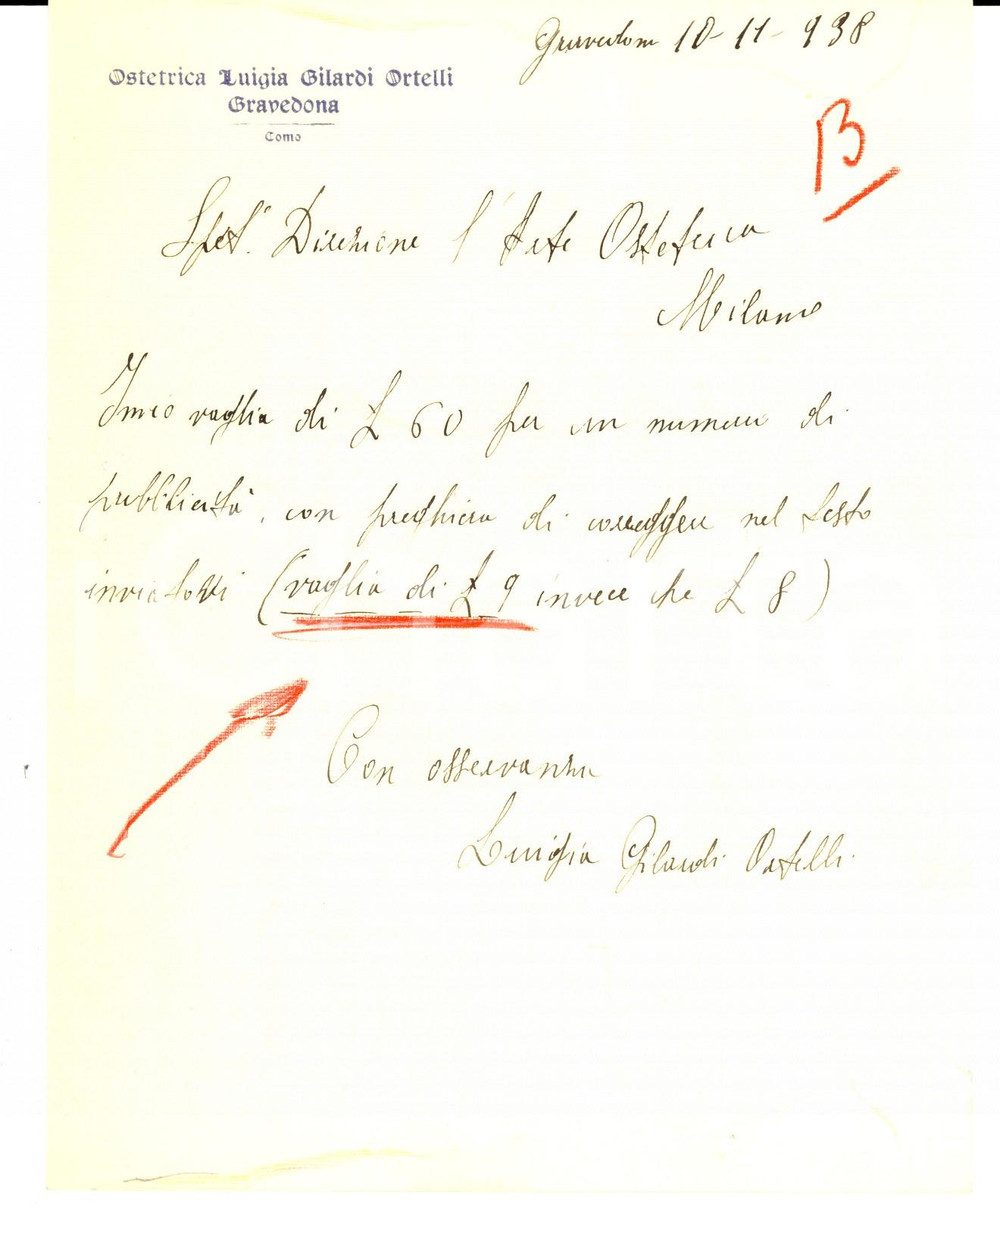 Gravedona 10-11-938
Ostetrica Luigia Gilardi Ortelli
Gravedona
Como
B
Spet. Direzione l'Arte Ostetrica
Milano
Invio vaglia di £ 60 per un numero di
pubblicità, con preghiera di correggere nel testo
inviatovi (vaglia di £ 9 invece che £ 8)
Con osservanza
Luigia Gilardi Ortelli